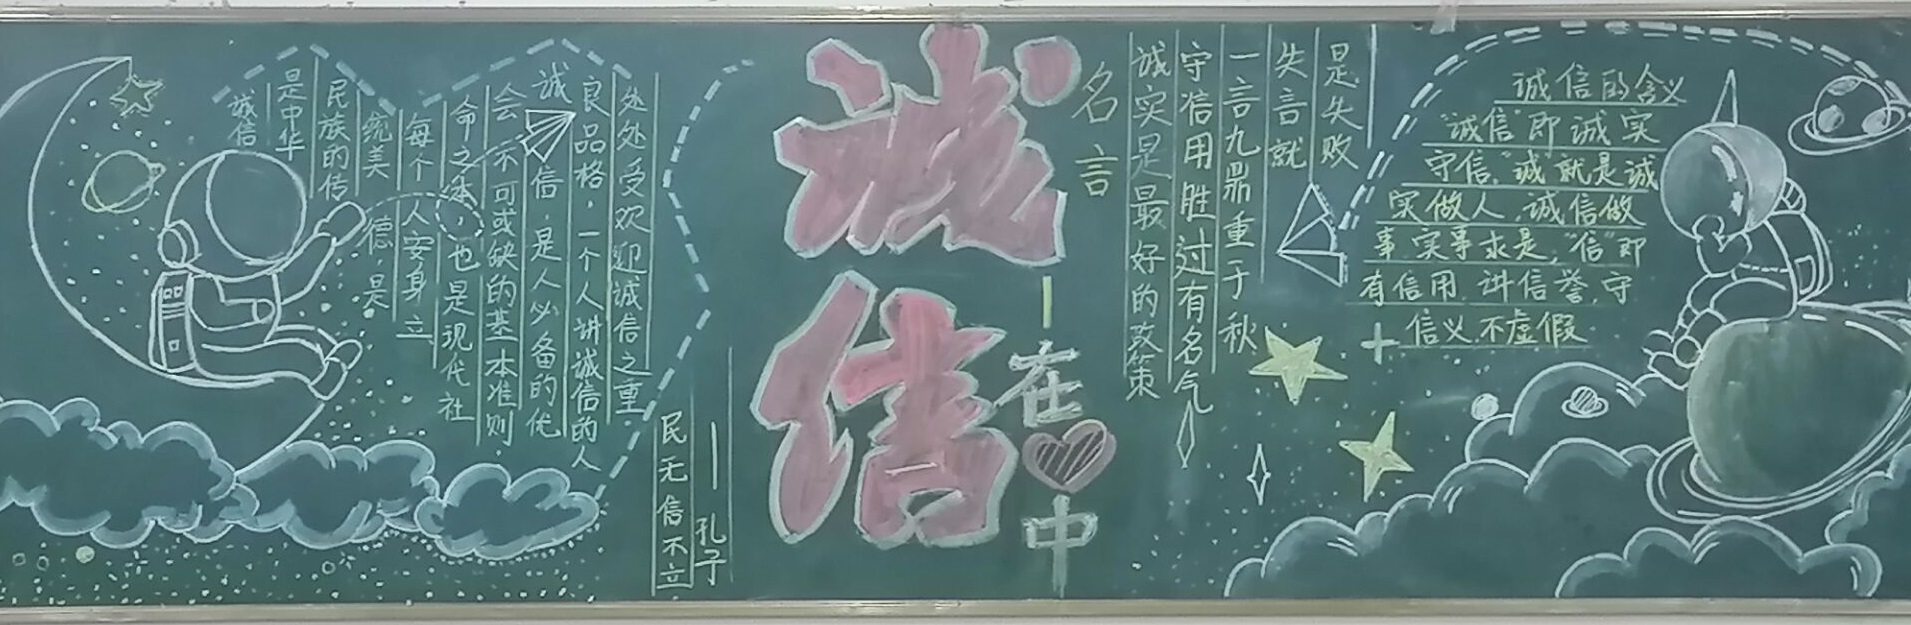 诚信
是中华
民族的传
统美德,是
每个人安身立
命之本,也是现代社
会不可或缺的基本准则.
诚信,是人必备的优
良品格,一个人讲诚信的人
处处受欢迎诚信之重
民无信不立
——孔子
诚信
—在中
名言
诚实是最好的政策
守信用胜过有名气
一言九鼎重于秋
失言就
是失败
诚信的含义
“诚信”即诚实
守信“诚”就是诚
实做人,诚信做
事,实事求是,“信”即
有信用,讲信誉,守
信义,不虚假